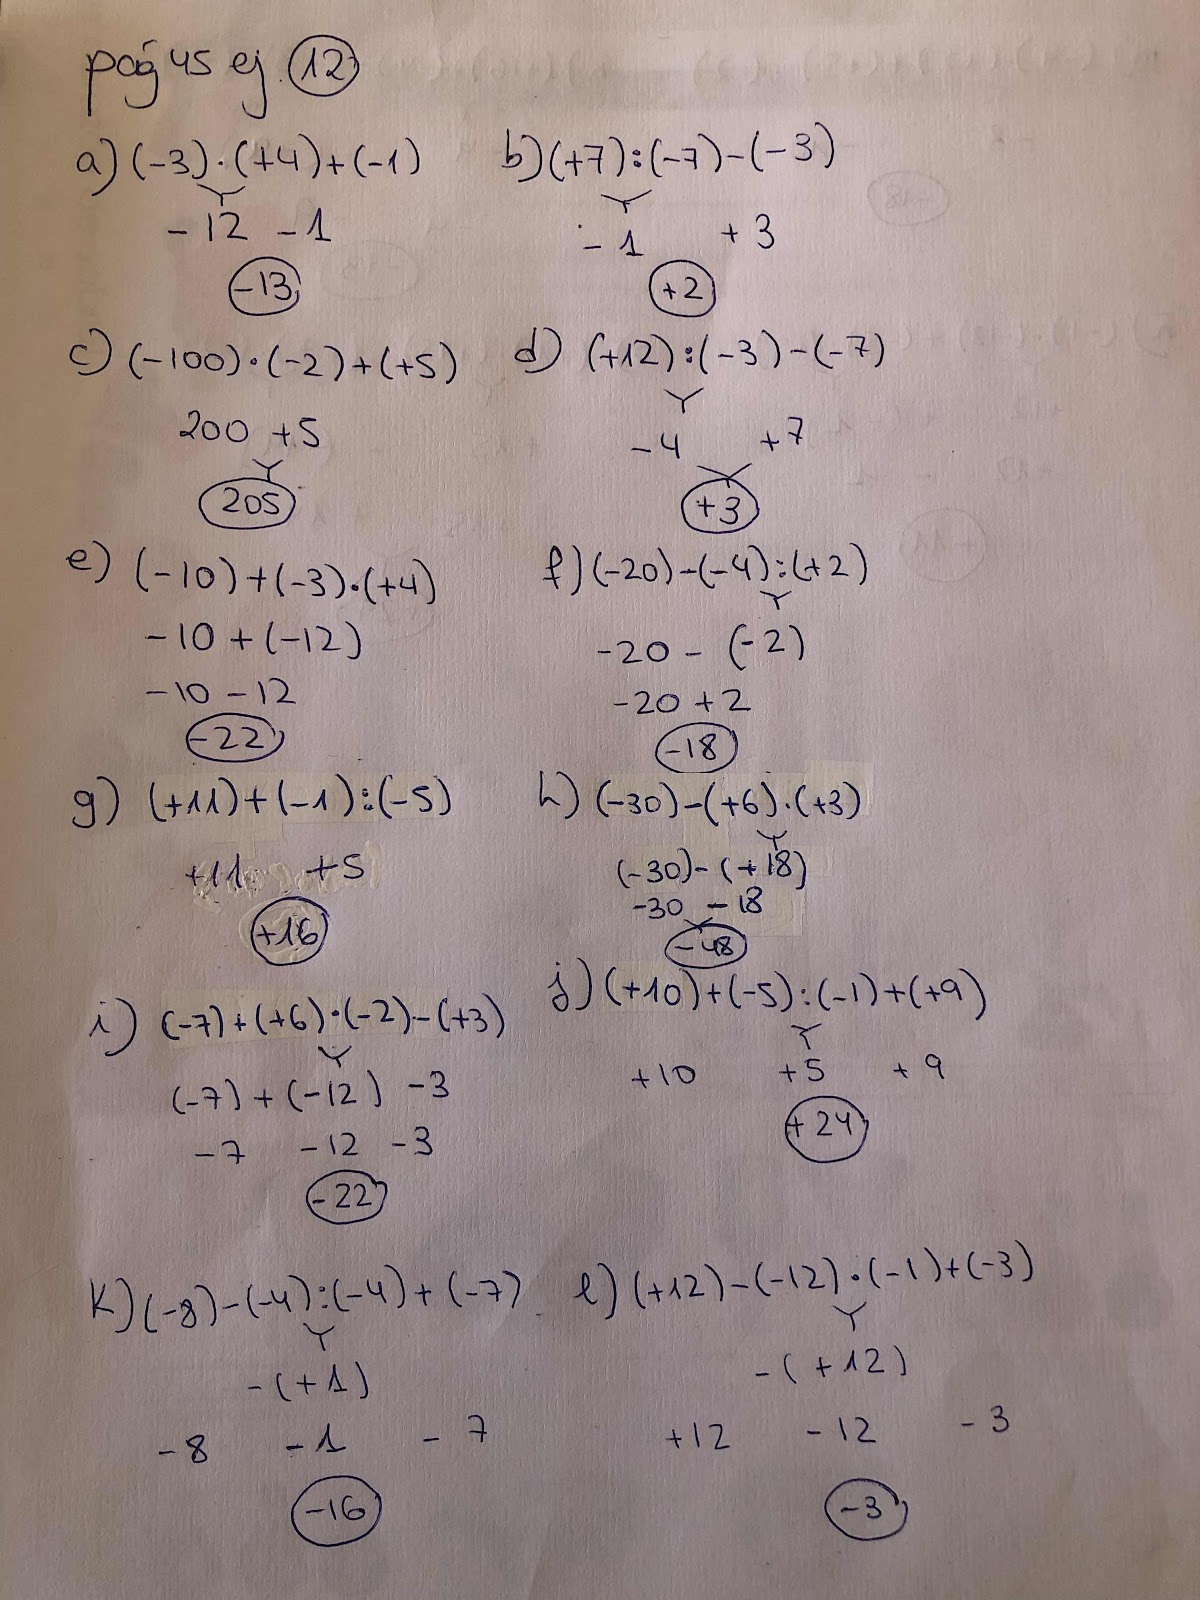 pág 45 ej. 12
a) (-3)·(+4)+(-1)
-12 -1
-13
b) (+7):(-7)-(-3)
-1 +3
+2
c) (-100)·(-2)+(+5)
200 +5
205
d) (+12):(-3)-(-7)
-4 +7
+3
e) (-10)+(-3)·(+4)
-10+(-12)
-10-12
-22
f) (-20)-(-4):(+2)
-20-(-2)
-20+2
-18
g) (+11)+(-1):(-5)
+11 +5
+16
h) (-30)-(+6)·(+3)
(-30)-(+18)
-30 -18
-48
i) (-7)+(+6)·(-2)-(+3)
(-7)+(-12) -3
-7 -12 -3
-22
j) (+10)+(-5):(-1)+(+9)
+10 +5 +9
+24
k) (-8)-(-4):(-4)+(-7)
-(+1)
-8 -1 -7
-16
l) (+12)-(-12)·(-1)+(-3)
-(+12)
+12 -12 -3
-3